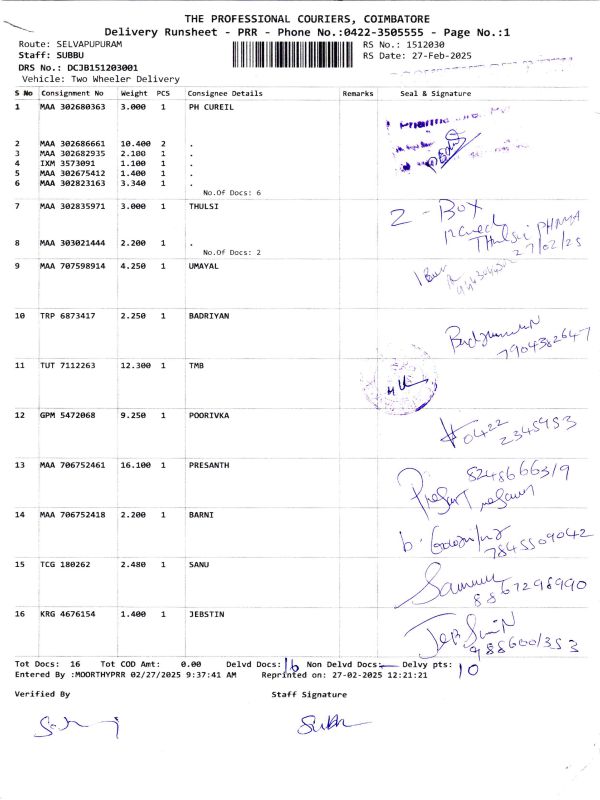 THE PROFESSIONAL COURIERS, COIMBATORE
Delivery Runsheet - PRR - Phone No.:0422-3505555 - Page No.:1
Route: SELVAPUPURAM RS No.: 1512030
Staff: SUBBU RS Date: 27-Feb-2025
DRS No.: DCJB151203001
Vehicle: Two Wheeler Delivery
S No Consignment No Weight PCS Consignee Details Remarks Seal & Signature
1 MAA 302680363 3.000 1 PH CUREIL
2 MAA 302686661 10.400 2 .
3 MAA 302682935 2.100 1 .
4 IXM 3573091 1.100 1 .
5 MAA 302675412 1.400 1 .
6 MAA 302823163 3.340 1 .
No.Of Docs: 6
7 MAA 302835971 3.000 1 THULSI 2 - Box
Thulsi PHRMA
27/02/25
8 MAA 303021444 2.200 1 .
No.Of Docs: 2
9 MAA 707598914 4.250 1 UMAYAL 1 Box
10 TRP 6873417 2.250 1 BADRIYAN
7904382647
11 TUT 7112263 12.300 1 TMB
12 GPM 5472068 9.250 1 POORIVKA 0422
2345953
13 MAA 706752461 16.100 1 PRESANTH 8248666319
14 MAA 706752418 2.200 1 BARNI
7845509042
15 TCG 180262 2.480 1 SANU
8867298990
16 KRG 4676154 1.400 1 JEBSTIN
9886001353
Tot Docs: 16 Tot COD Amt: 0.00 Delvd Docs: 16 Non Delvd Docs: — Delvy pts: 10
Entered By :MOORTHYPRR 02/27/2025 9:37:41 AM Reprinted on: 27-02-2025 12:21:21
Verified By Staff Signature